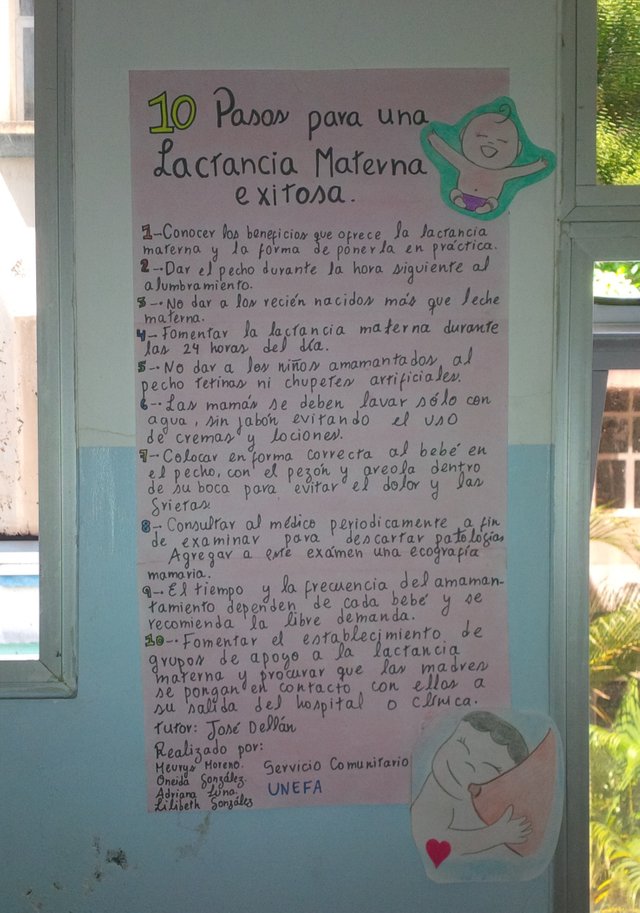 10 Pasos para una
Lactancia Materna
exitosa.
1-Conocer los beneficios que ofrece la lactancia
materna y la forma de ponerla en práctica.
2-Dar el pecho durante la hora siguiente al
alumbramiento.
3-No dar a los recién nacidos más que leche
materna.
4-Fomentar la lactancia materna durante
las 24 horas del día.
5-No dar a los niños amamantados, al
pecho tetinas ni chupetes artificiales.
6-Las mamás se deben lavar sólo con
agua, sin jabón evitando el uso
de cremas y lociones.
7-Colocar en forma correcta al bebé en
el pecho, con el pezón y areola dentro
de su boca para evitar el dolor y las
grietas.
8-Consultar al médico periodicamente a fin
de examinar para descartar patologías
Agregar a este exámen una ecografía
mamaria.
9-El tiempo y la frecuencia del amaman-
tamiento dependen de cada bebé y se
recomienda la libre demanda.
10-Fomentar el establecimiento de
grupos de apoyo a la lactancia
materna y procurar que las madres
se pongan en contacto con ellos a
su salida del hospital o clínica.
Tutor: José Dellán
Realizado por:
Meurys Moreno.
Oneida González.
Adriana Luna.
Lilibeth Gonzáles
Servicio Comunitario
UNEFA